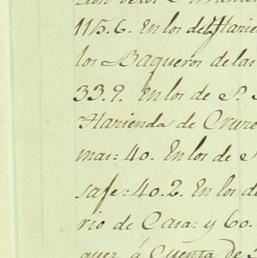 115.6. En los de Harien
los Baqueros de las
33.9. En los de S.
Harienda de Cruce
mas: 40. En los de
safe: 40.2. En los de
rio de Casa: y 60.
á Cuenta de